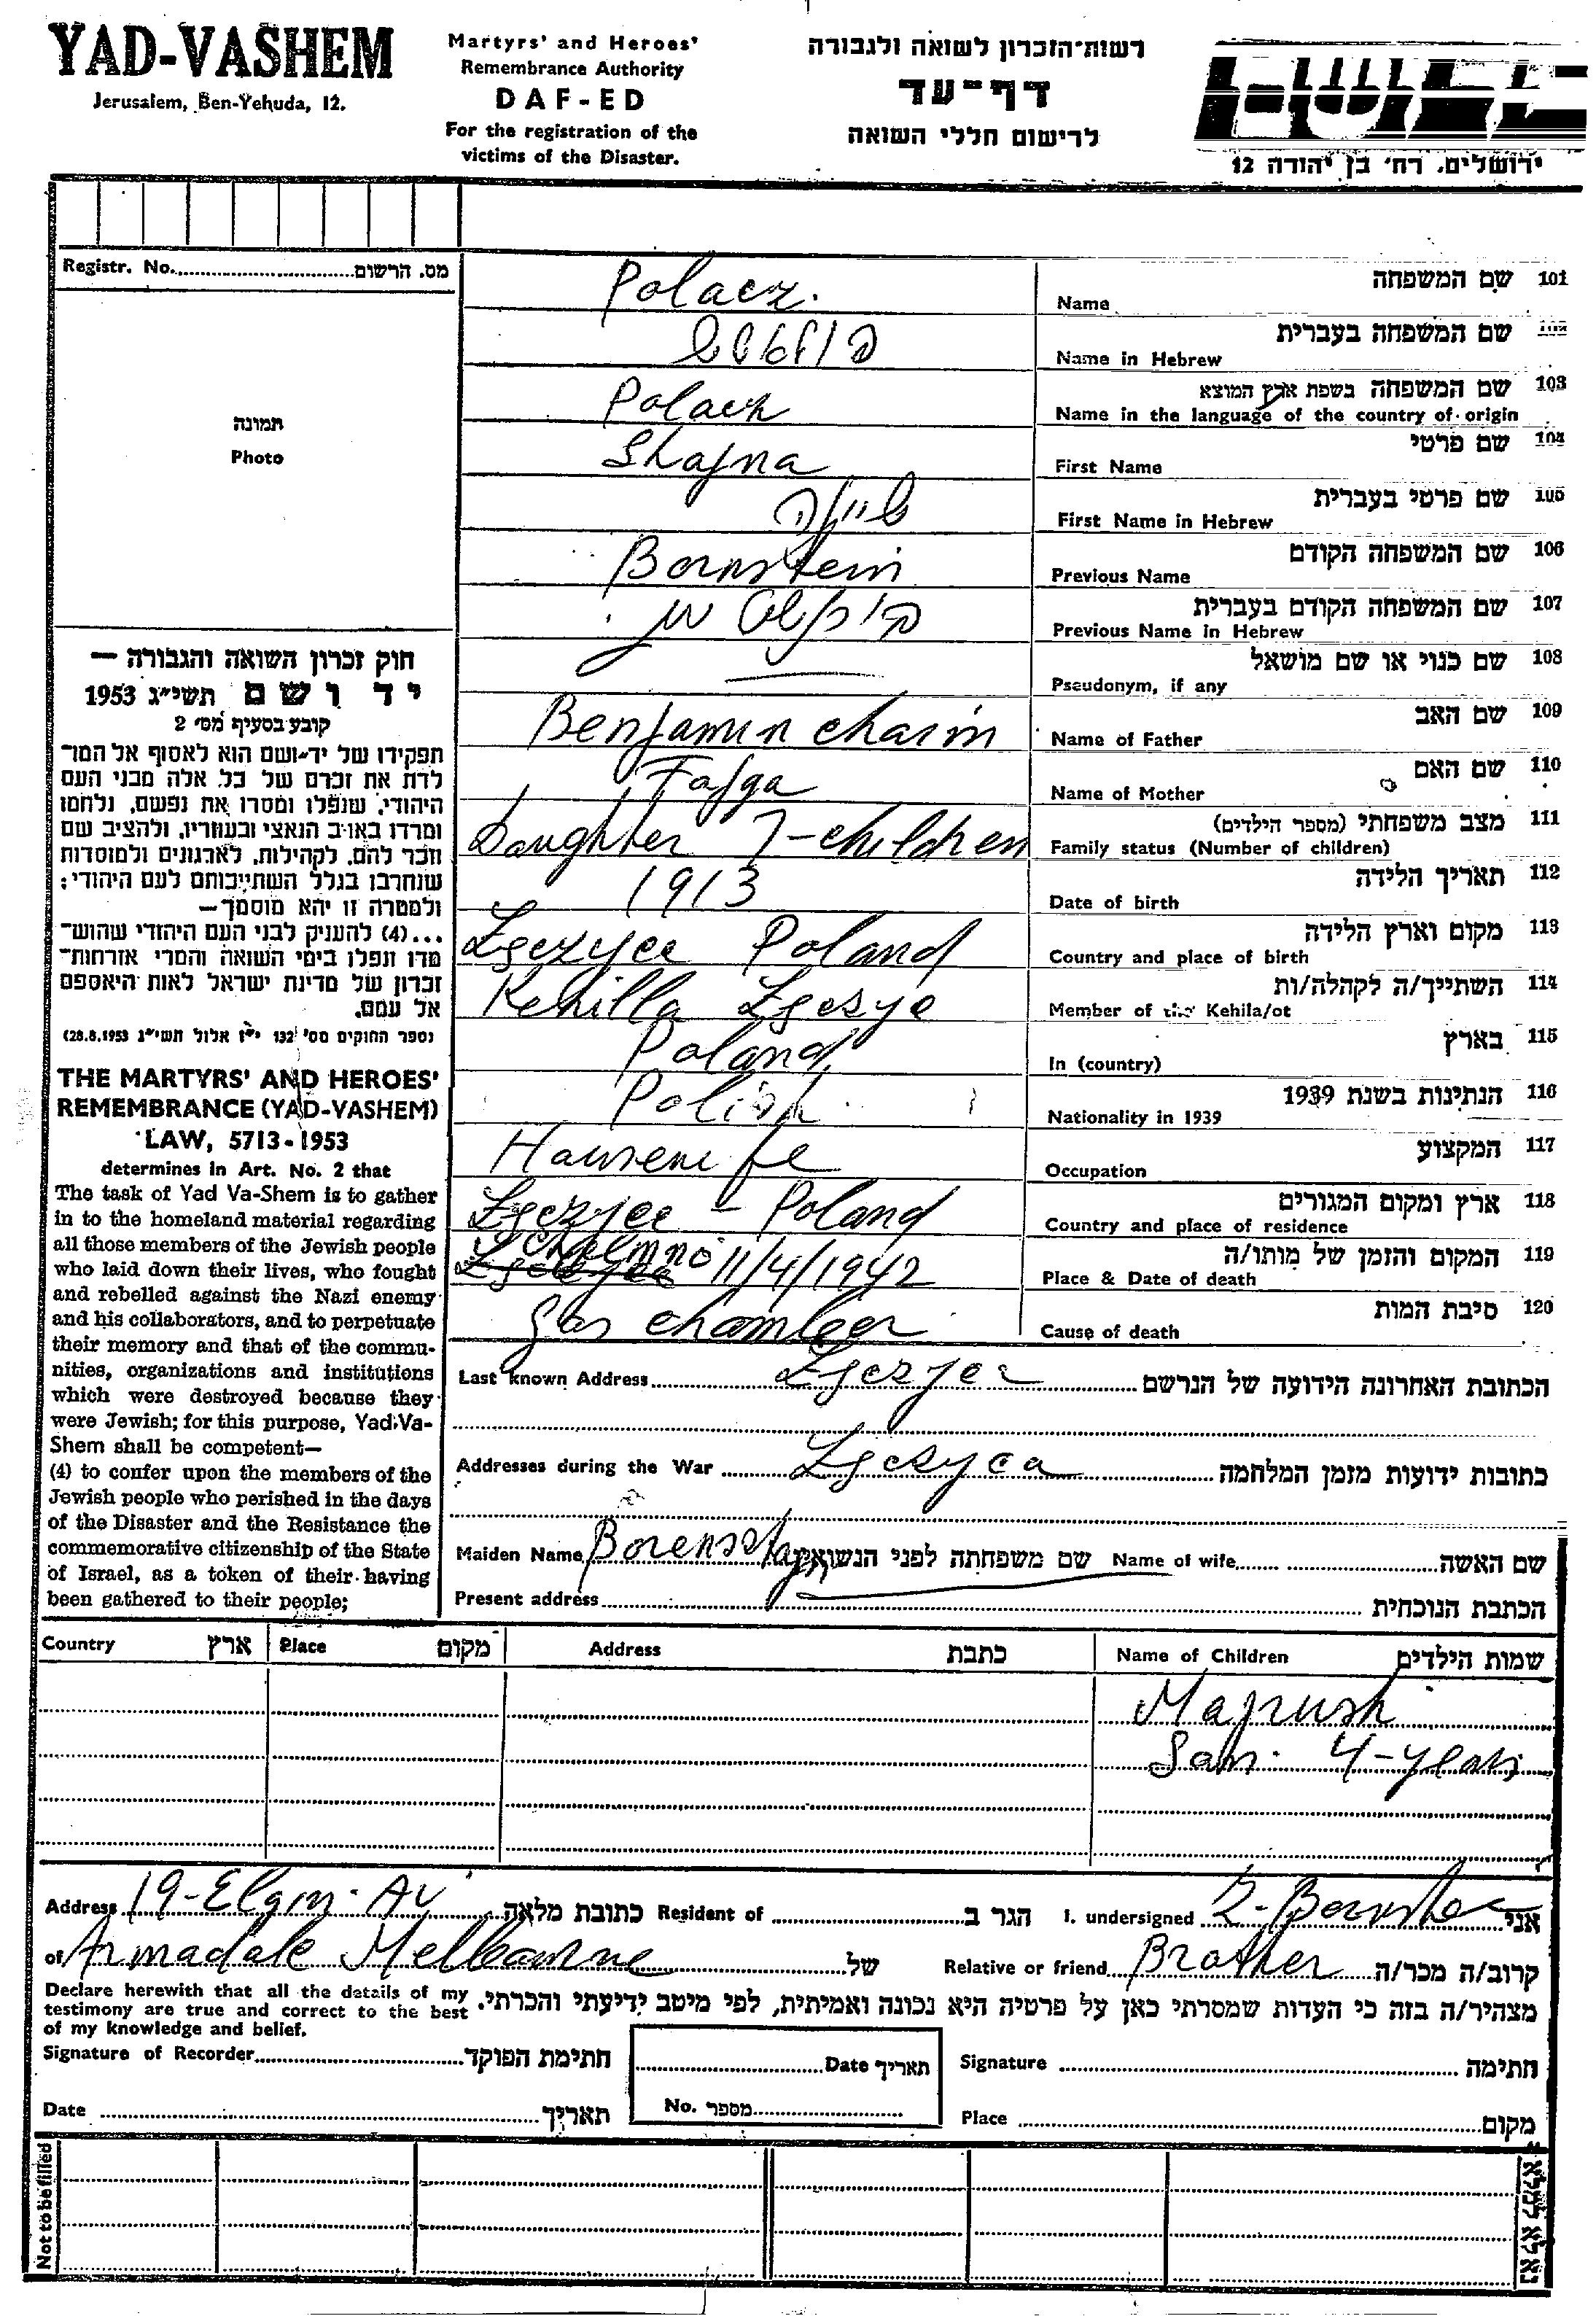 YAD-VASHEM
Jerusalem, Ben-Yehuda, 12.
Martyrs' and Heroes'
Remembrance Authority
DAF-ED
For the registration of the
victims of the Disaster.
רשות-הזכרון לשואה ולגבורה
דף-עד
לרישום חללי השואה
ירושלים, רח' בן יהודה 12
Registr. No. מס. הרשום
תמונה
Photo
Polacz. Name שם המשפחה 101
Name in Hebrew שם המשפחה בעברית 102
Polacz Name in the language of the country of origin שם המשפחה בשפת ארץ המוצא 103
Shajna First Name שם פרטי 104
First Name in Hebrew שם פרטי בעברית 105
Bornstein Previous Name שם המשפחה הקודם 106
Previous Name in Hebrew שם המשפחה הקודם בעברית 107
Pseudonym, if any שם כנוי או שם מושאל 108
Benjamin Chaim Name of Father שם האב 109
Fajga Name of Mother שם האם 110
Daughter 7-children Family status (Number of children) מצב משפחתי (מספר הילדים) 111
1913 Date of birth תאריך הלידה 112
Poland Country and place of birth מקום וארץ הלידה 113
Kehilla Member of the Kehila/ot השתייך/ה לקהלה/ות 114
Poland In (country) בארץ 115
Polish Nationality in 1939 הנתינות בשנת 1939 116
Housewife Occupation המקצוע 117
- Poland Country and place of residence ארץ ומקום המגורים 118
Chelmno 11/4/1942 Place & Date of death המקום והזמן של מותו/ה 119
Gas chamber Cause of death סיבת המות 120
Last known Address הכתובת האחרונה הידועה של הנרשם
Addresses during the War כתובות ידועות מזמן המלחמה
Maiden Name שם משפחתה לפני הנשואין Name of wife שם האשה
Present address הכתבת הנוכחית
חוק זכרון השואה והגבורה —
יד ושם תשי"ג 1953
קובע בסעיף מס' 2
תפקידו של יד-ושם הוא לאסוף אל המו-
לדת את זכרם של כל אלה מבני העם
היהודי, שנפלו ומסרו את נפשם, נלחמו
ומרדו באויב הנאצי ובעוזריו, ולהציב שם
וזכר להם, לקהילות, לארגונים ולמוסדות
שנחרבו בגלל השתייכותם לעם היהודי;
ולמטרה זו יהא מוסמך—
...(4) להעניק לבני העם היהודי שהוש-
מדו ונפלו בימי השואה והמרי אזרחות-
זכרון של מדינת ישראל לאות היאספם
אל עמם.
(ספר החוקים מס' 132 י"ז אלול תשי"ג 28.8.1953)
THE MARTYRS' AND HEROES'
REMEMBRANCE (YAD-VASHEM)
LAW, 5713-1953
determines in Art. No. 2 that
The task of Yad Va-Shem is to gather
in to the homeland material regarding
all those members of the Jewish people
who laid down their lives, who fought
and rebelled against the Nazi enemy
and his collaborators, and to perpetuate
their memory and that of the commu-
nities, organizations and institutions
which were destroyed because they
were Jewish; for this purpose, Yad Va-
Shem shall be competent—
(4) to confer upon the members of the
Jewish people who perished in the days
of the Disaster and the Resistance the
commemorative citizenship of the State
of Israel, as a token of their having
been gathered to their people;
Country ארץ Place מקום Address כתבת Name of Children שמות הילדים
Majrush
4-years
Address 19-Elgin Av כתובת מלאה Resident of הגר ב I. undersigned אני
of Armadale Melbourne של Relative or friend Brother קרוב/ה מכר/ה
Declare herewith that all the details of my
testimony are true and correct to the best
of my knowledge and belief.
מצהיר/ה בזה כי העדות שמסרתי כאן על פרטיה היא נכונה ואמיתית, לפי מיטב ידיעתי והכרתי.
Signature of Recorder חתימת הפוקד Date תאריך Signature חתימה
Date תאריך No. מספר Place מקום
Not to be filled
נא לא למלא